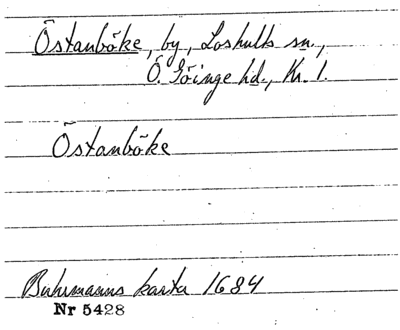 Östanböke, by, Loshults sn.,
Ö. Göinge hd., Kr. l.
Östanböke
Buhrmanns karta 1684
Nr 5428